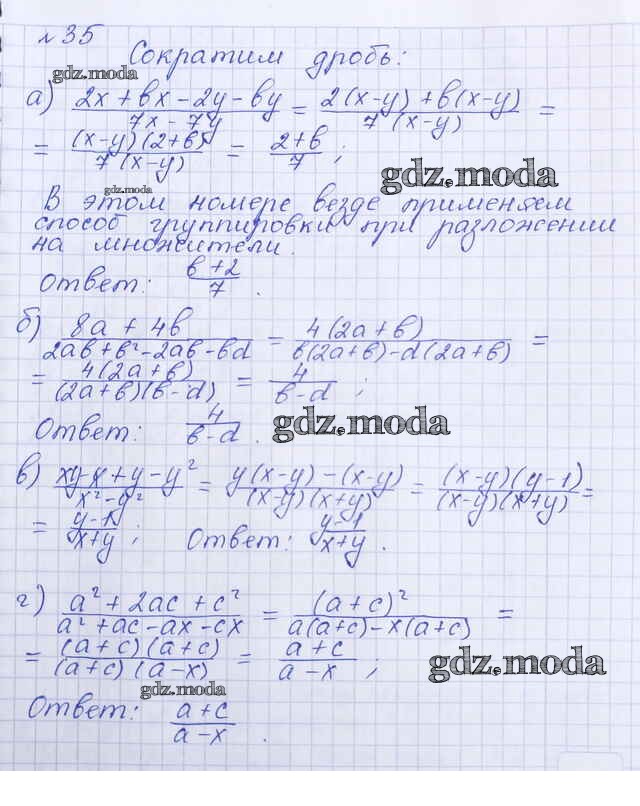 № 35
Сократим дробь:
gdz.moda
а) (2x + вx - 2y - вy)/(7x - 7y) = (2(x-y) + в(x-y))/(7(x-y)) =
= ((x-y)(2+в))/(7(x-y)) = (2+в)/7 ;
gdz.moda
gdz.moda
В этом номере везде применяем
способ группировки при разложении
на множители.
Ответ: (в+2)/7 .
б) (8a + 4в)/(2aв + в² - 2aв - вd) = (4(2a+в))/(в(2a+в) - d(2a+в)) =
= (4(2a+в))/((2a+в)(в-d)) = 4/(в-d) ;
Ответ: 4/(в-d) .
gdz.moda
в) (xy - x + y - y²)/(x² - y²) = (y(x-y) - (x-y))/((x-y)(x+y)) = ((x-y)(y-1))/((x-y)(x+y)) =
= (y-1)/(x+y) ; Ответ: (y-1)/(x+y) .
г) (a² + 2ac + c²)/(a² + ac - ax - cx) = (a+c)²/(a(a+c) - x(a+c)) =
= ((a+c)(a+c))/((a+c)(a-x)) = (a+c)/(a-x) ;
gdz.moda
gdz.moda
Ответ: (a+c)/(a-x) .